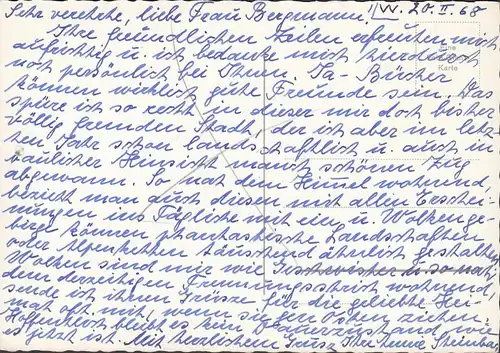 Sehr verehrte, liebe Frau Bergmann! W. 20.II.68
Ihre freundlichen Zeilen erfreuten mich
aufrichtig u. ich bedanke mich hierdurch
noch persönlich bei Ihnen. Ja - Bücher
können wirklich gute Freunde sein. Das
spüre ich so recht in dieser mir doch bisher
völlig fremden Stadt, der ich aber im letz-
ten Jahr schon landschaftlich u. auch in
baulicher Hinsicht manch schönen Zug
abgewann. So nah dem Himmel wohnend,
bezieht man auch diesen mit allen Erschei-
nungen ins Tägliche mit ein u. Wolkenge-
birge können phantastische Landschaften
oder Alpenketten täuschend ähnlich gestalten.
Wolken sind mir wie u. so nah
dem derzeitigen Trennungsstrich wohnend,
sende ich ihnen Grüsse für die geliebte Hei-
mat oft mit, wenn sie gen Osten ziehen.
Hoffentlich bleibt es kein Dauerzustand, wie
es jetzt ist. Mit herzlichem Gruss Ihre
Eine
Karte